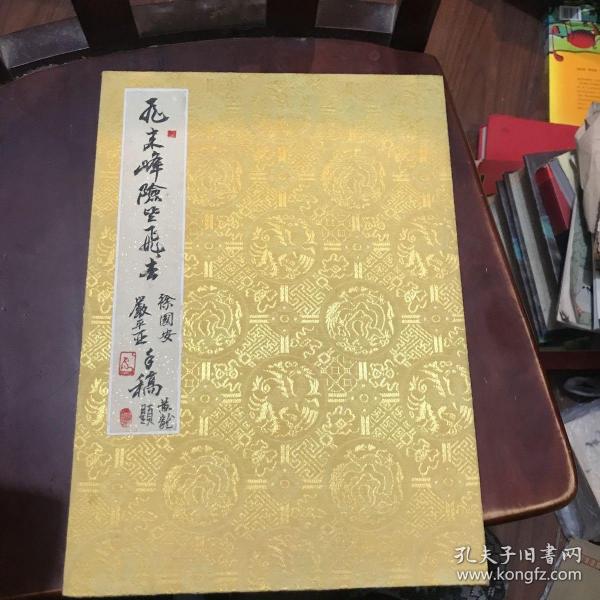 飛来峰險些飛去
徐國安
嚴平亚
手稿
黄龍
題
孔夫子旧書网
www.kongfz.com